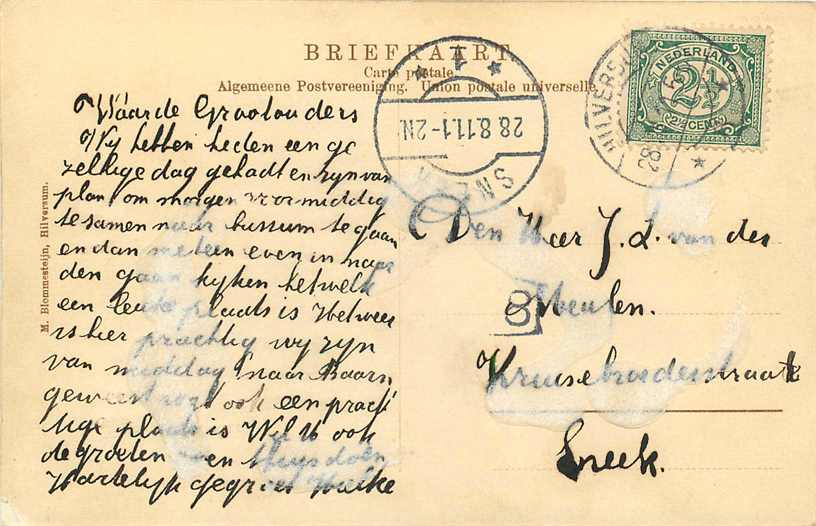 BRIEFKAART
Carte postale
Algemeene Postvereeniging. Union postale universelle
NEDERLAND
2½
2½ CENT
HILVERSUM
28.8.11.1-2N.
SNEEK
M. Blommesteijn, Hilversum.
Waarde Grootouders
Wy hebben heden een ge
zellige dag gehad en zyn van
plan om morgen voormiddag
te samen naar bussum te gaan
en dan meteen even in naar
den gaan kyken hetwelk
een leuke plaats is Het weer
is hier prachtig wy zyn
van middag naar Baarn
geweest ook een prach
tige plaats is Wil U ook
de groeten doen
Hartelyk gegroet
Den Heer J. L. van der
Meulen.
8
Kruisebroederstraat
Sneek.